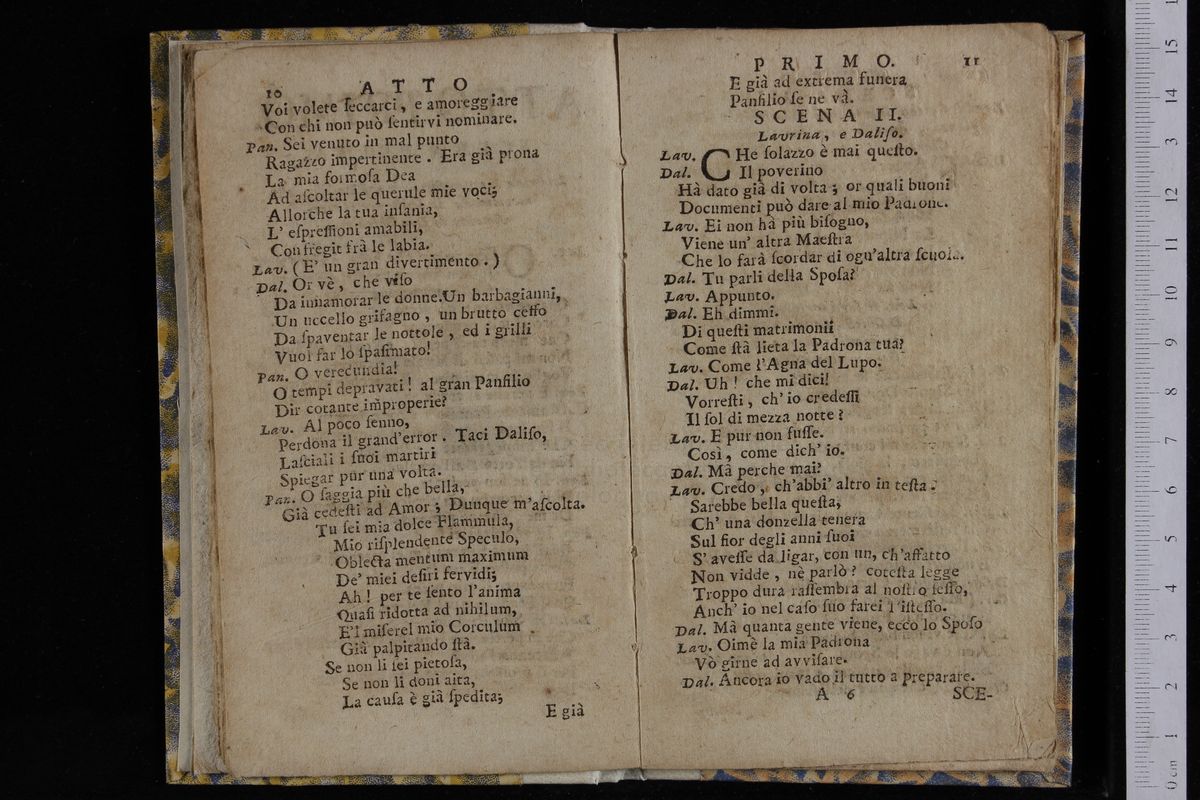 10 ATTO
Voi volete ſeccarci, e amoreggiare
Con chi non può ſentirvi nominare.
Pan. Sei venuto in mal punto
Ragazzo impertinente. Era già prona
La mia formoſa Dea
Ad aſcoltar le querule mie voci;
Allorche la tua inſania,
L' eſpreſſioni amabili,
Confregit frà le labia.
Lav. (E' un gran divertimento.)
Dal. Or vè, che viſo
Da innamorar le donne. Un barbagianni,
Un uccello grifagno, un brutto ceffo
Da ſpaventar le nottole, ed i grilli
Vuol far lo ſpaſimato!
Pan. O verecundia!
O tempi depravati! al gran Panfilio
Dir cotante improperie?
Lav. Al poco ſenno,
Perdona il grand'error. Taci Daliſo,
Laſciali i ſuoi martiri
Spiegar pur una volta.
Pan. O ſaggia più che bella,
Già cedeſti ad Amor; Dunque m'aſcolta.
Tu ſei mia dolce Flammula,
Mio riſplendente Speculo,
Oblectamentum maximum
De' miei deſiri fervidi;
Ah! per te ſento l'anima
Quaſi ridotta ad nihilum,
E'l miſerel mio Corculum
Già palpitando ſtà.
Se non li ſei pietoſa,
Se non li doni aita,
La cauſa è già ſpedita;
E già
PRIMO. 11
E già ad extrema funera
Panfilio ſe ne và.
SCENA II.
Laurina, e Daliſo.
Lav. CHe ſolazzo è mai queſto.
Dal. Il poverino
Hà dato già di volta; or quali buoni
Documenti può dare al mio Padrone.
Lav. Ei non hà più biſogno,
Viene un' altra Maeſtra
Che lo farà ſcordar di ogn'altra ſcuola.
Dal. Tu parli della Spoſa?
Lav. Appunto.
Dal. Eh dimmi.
Di queſti matrimonii
Come ſtà lieta la Padrona tua?
Lav. Come l'Agna del Lupo.
Dal. Uh! che mi dici!
Vorreſti, ch' io credeſſi
Il ſol di mezza notte?
Lav. E pur non fuſſe.
Così, come dich' io.
Dal. Mà perche mai?
Lav. Credo, ch'abbi' altro in teſta.
Sarebbe bella queſta,
Ch' una donzella tenera
Sul fior degli anni ſuoi
S' aveſſe da ligar, con un, ch'affatto
Non vidde, nè parlò? coteſta legge
Troppo dura raſſembra al noſtro ſeſſo,
Anch' io nel caſo ſuo farei l'iſteſſo.
Dal. Mà quanta gente viene, ecco lo Spoſo
Lav. Oimè la mia Padrona
Vò girne ad avviſare.
Dal. Ancora io vado il tutto a preparare.
A 6 SCE-